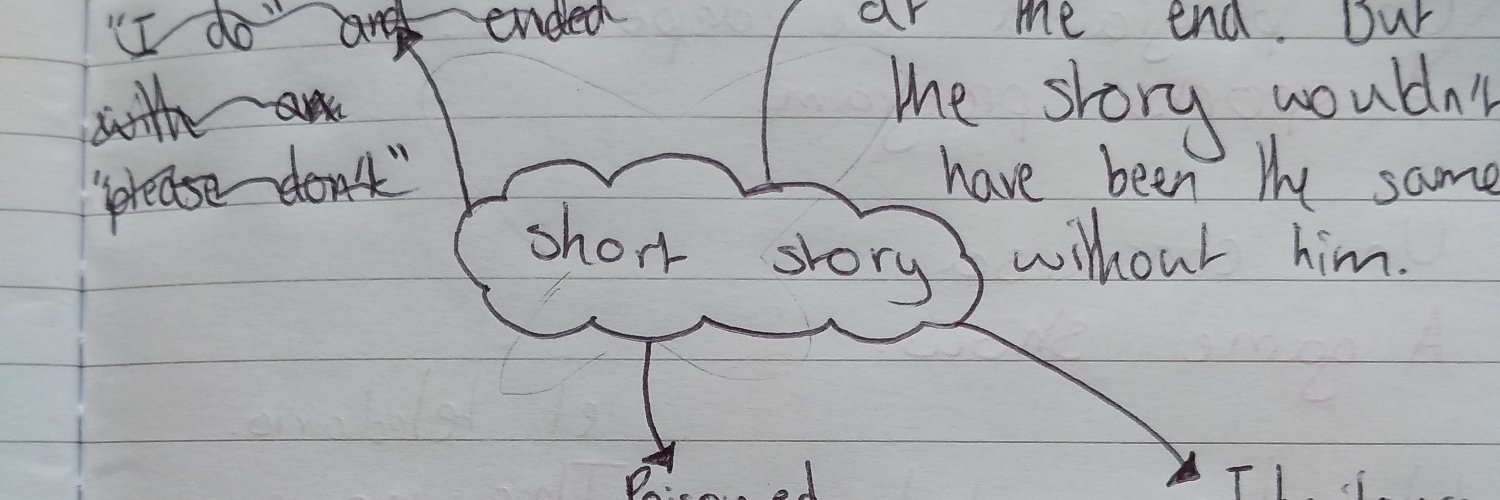 "I do" and ended
with an
"please don't"
at the end. But
the story wouldn't
have been the same
without him.
short story